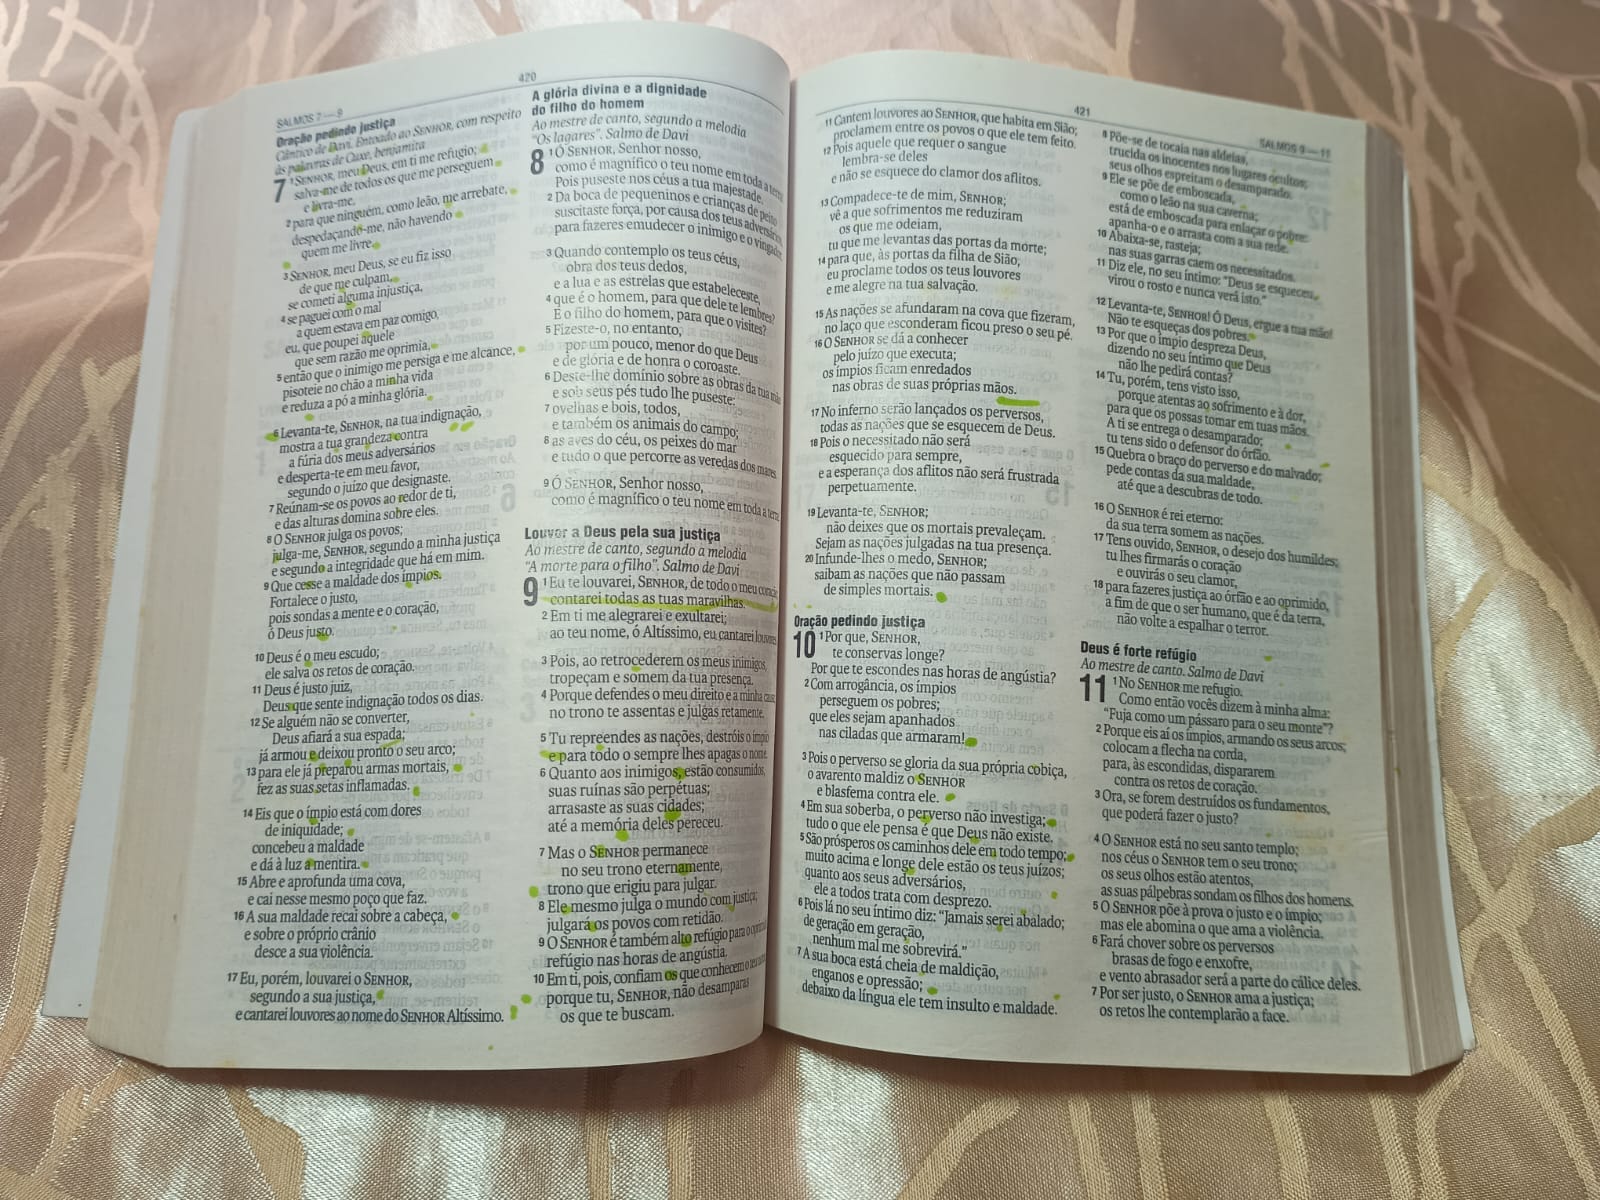 420
SALMOS 7 — 9
Oração pedindo justiça
Cântico de Davi. Entoado ao SENHOR, com respeito
às palavras de Cuxe, benjamita
7 1 SENHOR, meu Deus, em ti me refugio;
salva-me de todos os que me perseguem
e livra-me,
2 para que ninguém, como leão, me arrebate,
despedaçando-me, não havendo
quem me livre.
3 SENHOR, meu Deus, se eu fiz isso
de que me culpam,
se cometi alguma injustiça,
4 se paguei com o mal
a quem estava em paz comigo,
eu, que poupei aquele
que sem razão me oprimia,
5 então que o inimigo me persiga e me alcance,
pisoteie no chão a minha vida
e reduza a pó a minha glória.
6 Levanta-te, SENHOR, na tua indignação,
mostra a tua grandeza contra
a fúria dos meus adversários
e desperta-te em meu favor,
segundo o juízo que designaste.
7 Reúnam-se os povos ao redor de ti,
e das alturas domina sobre eles.
8 O SENHOR julga os povos;
julga-me, SENHOR, segundo a minha justiça
e segundo a integridade que há em mim.
9 Que cesse a maldade dos ímpios.
Fortalece o justo,
pois sondas a mente e o coração,
ó Deus justo.
10 Deus é o meu escudo;
ele salva os retos de coração.
11 Deus é justo juiz,
Deus que sente indignação todos os dias.
12 Se alguém não se converter,
Deus afiará a sua espada;
já armou e deixou pronto o seu arco;
13 para ele já preparou armas mortais,
fez as suas setas inflamadas.
14 Eis que o ímpio está com dores
de iniquidade;
concebeu a maldade
e dá à luz a mentira.
15 Abre e aprofunda uma cova,
e cai nesse mesmo poço que faz.
16 A sua maldade recai sobre a cabeça,
e sobre o próprio crânio
desce a sua violência.
17 Eu, porém, louvarei o SENHOR,
segundo a sua justiça,
e cantarei louvores ao nome do SENHOR Altíssimo.
A glória divina e a dignidade
do filho do homem
Ao mestre de canto, segundo a melodia
"Os lagares". Salmo de Davi
8 1 Ó SENHOR, Senhor nosso,
como é magnífico o teu nome em toda a terra
Pois puseste nos céus a tua majestade.
2 Da boca de pequeninos e crianças de peito
suscitaste força, por causa dos teus adversários,
para fazeres emudecer o inimigo e o vingador.
3 Quando contemplo os teus céus,
obra dos teus dedos,
e a lua e as estrelas que estabeleceste,
4 que é o homem, para que dele te lembres?
E o filho do homem, para que o visites?
5 Fizeste-o, no entanto,
por um pouco, menor do que Deus
e de glória e de honra o coroaste.
6 Deste-lhe domínio sobre as obras da tua mão
e sob seus pés tudo lhe puseste:
7 ovelhas e bois, todos,
e também os animais do campo;
8 as aves do céu, os peixes do mar
e tudo o que percorre as veredas dos mares
9 Ó SENHOR, Senhor nosso,
como é magnífico o teu nome em toda a terra
Louvor a Deus pela sua justiça
Ao mestre de canto, segundo a melodia
"A morte para o filho". Salmo de Davi
9 1 Eu te louvarei, SENHOR, de todo o meu coração
contarei todas as tuas maravilhas.
2 Em ti me alegrarei e exultarei;
ao teu nome, ó Altíssimo, eu cantarei louvores
3 Pois, ao retrocederem os meus inimigos,
tropeçam e somem da tua presença.
4 Porque defendes o meu direito e a minha causa
no trono te assentas e julgas retamente.
5 Tu repreendes as nações, destróis o ímpio
e para todo o sempre lhes apagas o nome.
6 Quanto aos inimigos, estão consumidos,
suas ruínas são perpétuas;
arrasaste as suas cidades;
até a memória deles pereceu.
7 Mas o SENHOR permanece
no seu trono eternamente,
trono que erigiu para julgar.
8 Ele mesmo julga o mundo com justiça;
julgará os povos com retidão.
9 O SENHOR é também alto refúgio para o
refúgio nas horas de angústia.
10 Em ti, pois, confiam os que conhecem o
porque tu, SENHOR, não desamparas
os que te buscam.
421
SALMOS 9 — 11
11 Cantem louvores ao SENHOR, que habita em Sião;
proclamem entre os povos o que ele tem feito.
12 Pois aquele que requer o sangue
lembra-se deles
e não se esquece do clamor dos aflitos.
13 Compadece-te de mim, SENHOR;
vê a que sofrimentos me reduziram
os que me odeiam,
tu que me levantas das portas da morte;
14 para que, às portas da filha de Sião,
eu proclame todos os teus louvores
e me alegre na tua salvação.
15 As nações se afundaram na cova que fizeram,
no laço que esconderam ficou preso o seu pé.
16 O SENHOR se dá a conhecer
pelo juízo que executa;
os ímpios ficam enredados
nas obras de suas próprias mãos.
17 No inferno serão lançados os perversos,
todas as nações que se esquecem de Deus.
18 Pois o necessitado não será
esquecido para sempre,
e a esperança dos aflitos não será frustrada
perpetuamente.
19 Levanta-te, SENHOR;
não deixes que os mortais prevaleçam.
Sejam as nações julgadas na tua presença.
20 Infunde-lhes o medo, SENHOR;
saibam as nações que não passam
de simples mortais.
Oração pedindo justiça
10 1 Por que, SENHOR,
te conservas longe?
Por que te escondes nas horas de angústia?
2 Com arrogância, os ímpios
perseguem os pobres;
que eles sejam apanhados
nas ciladas que armaram!
3 Pois o perverso se gloria da sua própria cobiça,
o avarento maldiz o SENHOR
e blasfema contra ele.
4 Em sua soberba, o perverso não investiga;
tudo o que ele pensa é que Deus não existe.
5 São prósperos os caminhos dele em todo tempo;
muito acima e longe dele estão os teus juízos;
quanto aos seus adversários,
ele a todos trata com desprezo.
6 Pois lá no seu íntimo diz: "Jamais serei abalado;
de geração em geração,
nenhum mal me sobrevirá."
7 A sua boca está cheia de maldição,
enganos e opressão;
debaixo da língua ele tem insulto e maldade.
8 Põe-se de tocaia nas aldeias,
trucida os inocentes nos lugares ocultos;
seus olhos espreitam o desamparado.
9 Ele se põe de emboscada,
como o leão na sua caverna;
está de emboscada para enlaçar o pobre:
apanha-o e o arrasta com a sua rede.
10 Abaixa-se, rasteja;
nas suas garras caem os necessitados.
11 Diz ele, no seu íntimo: "Deus se esqueceu,
virou o rosto e nunca verá isto."
12 Levanta-te, SENHOR! Ó Deus, ergue a tua mão!
Não te esqueças dos pobres.
13 Por que o ímpio despreza Deus,
dizendo no seu íntimo que Deus
não lhe pedirá contas?
14 Tu, porém, tens visto isso,
porque atentas ao sofrimento e à dor,
para que os possas tomar em tuas mãos.
A ti se entrega o desamparado;
tu tens sido o defensor do órfão.
15 Quebra o braço do perverso e do malvado;
pede contas da sua maldade,
até que a descubras de todo.
16 O SENHOR é rei eterno:
da sua terra somem as nações.
17 Tens ouvido, SENHOR, o desejo dos humildes;
tu lhes firmarás o coração
e ouvirás o seu clamor,
18 para fazeres justiça ao órfão e ao oprimido,
a fim de que o ser humano, que é da terra,
não volte a espalhar o terror.
Deus é forte refúgio
Ao mestre de canto. Salmo de Davi
11 1 No SENHOR me refugio.
Como então vocês dizem à minha alma:
"Fuja como um pássaro para o seu monte"?
2 Porque eis aí os ímpios, armando os seus arcos;
colocam a flecha na corda,
para, às escondidas, dispararem
contra os retos de coração.
3 Ora, se forem destruídos os fundamentos,
que poderá fazer o justo?
4 O SENHOR está no seu santo templo;
nos céus o SENHOR tem o seu trono;
os seus olhos estão atentos,
as suas pálpebras sondam os filhos dos homens.
5 O SENHOR põe à prova o justo e o ímpio;
mas ele abomina o que ama a violência.
6 Fará chover sobre os perversos
brasas de fogo e enxofre,
e vento abrasador será a parte do cálice deles.
7 Por ser justo, o SENHOR ama a justiça;
os retos lhe contemplarão a face.